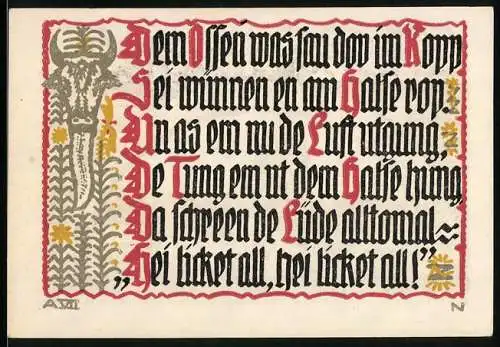 Dem Ossen was sau dov im Kopp
Sei wünnen en am Halse rop.
Un as em nu de Luft utgung,
De Tung em ut dem Halse hung,
Da schreen de Lüde alltomal~
„Hei licket all, hei licket all!”
A VII
N